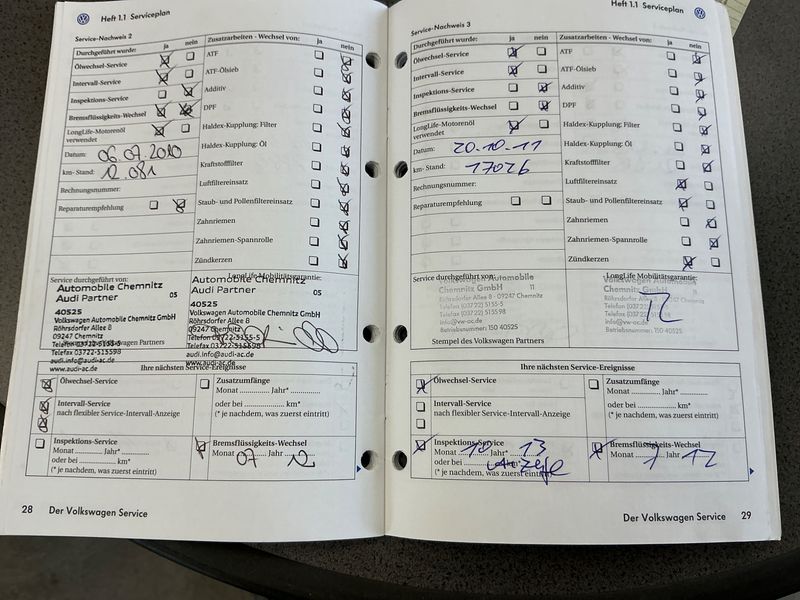 Heft 1.1 Serviceplan
Service-Nachweis 2
Durchgeführt wurde: ja nein
Ölwechsel-Service
Intervall-Service
Inspektions-Service
Bremsflüssigkeits-Wechsel
LongLife-Motorenöl
verwendet
Datum: 06.07.2010
km- Stand: 12.081
Rechnungsnummer:
Reparaturempfehlung
Zusatzarbeiten - Wechsel von: ja nein
ATF
ATF-Ölsieb
Additiv
DPF
Haldex-Kupplung: Filter
Haldex-Kupplung: Öl
Kraftstofffilter
Luftfiltereinsatz
Staub- und Pollenfiltereinsatz
Zahnriemen
Zahnriemen-Spannrolle
Zündkerzen
Service durchgeführt von:
Automobile Chemnitz
Audi Partner 05
40525
Volkswagen Automobile Chemnitz GmbH
Röhrsdorfer Allee 8
09247 Chemnitz
Telefon 03722-5155-5
Telefax 03722-515598
audi.info@audi-ac.de
www.audi-ac.de
LongLife Mobilitätsgarantie:
Automobile Chemnitz
Audi Partner 05
40525
Volkswagen Automobile Chemnitz GmbH
Röhrsdorfer Allee 8
09247 Chemnitz
Telefon 03722-5155-5
Telefax 03722-515598
audi.info@audi-ac.de
www.audi-ac.de
Ihre nächsten Service-Ereignisse
Ölwechsel-Service
Intervall-Service
nach flexibler Service-Intervall-Anzeige
Inspektions-Service
Monat ........... Jahr* ...........
oder bei ........................ km*
(* je nachdem, was zuerst eintritt)
Zusatzumfänge
Monat ........... Jahr* ...........
oder bei ........................ km*
(* je nachdem, was zuerst eintritt)
Bremsflüssigkeits-Wechsel
Monat 07 Jahr 12
28 Der Volkswagen Service
Heft 1.1 Serviceplan
Service-Nachweis 3
Durchgeführt wurde: ja nein
Ölwechsel-Service
Intervall-Service
Inspektions-Service
Bremsflüssigkeits-Wechsel
LongLife-Motorenöl
verwendet
Datum: 20.10.11
km- Stand: 17026
Rechnungsnummer:
Reparaturempfehlung
Zusatzarbeiten - Wechsel von: ja nein
ATF
ATF-Ölsieb
Additiv
DPF
Haldex-Kupplung: Filter
Haldex-Kupplung: Öl
Kraftstofffilter
Luftfiltereinsatz
Staub- und Pollenfiltereinsatz
Zahnriemen
Zahnriemen-Spannrolle
Zündkerzen
Service durchgeführt von:
Volkswagen Automobile
Chemnitz GmbH 11
Röhrsdorfer Allee 8 · 09247 Chemnitz
Telefon (03722) 5155-5
Telefax (03722)
info@vw-ac.de
Betriebsnummer: 150 40525
Stempel des Volkswagen Partners
LongLife Mobilitätsgarantie:
Volkswagen Automobile
Chemnitz GmbH
Röhrsdorfer Allee 8 · 09247 Chemnitz
info@vw-ac.de
Betriebsnummer: 150 40525
Ihre nächsten Service-Ereignisse
Ölwechsel-Service
Intervall-Service
nach flexibler Service-Intervall-Anzeige
Inspektions-Service
Monat 10 Jahr* 13
oder bei
(* je nachdem, was zuerst eintritt)
Zusatzumfänge
Monat ........... Jahr* ...........
oder bei ........................ km*
(* je nachdem, was zuerst eintritt)
Bremsflüssigkeits-Wechsel
Monat 7 Jahr 12
Der Volkswagen Service 29